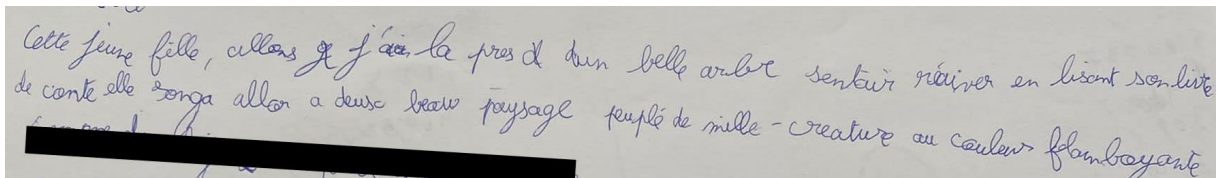 Cette jeune fille, allons j' la pres d dun belle arbre sentair réaiver en lisant son livre
de conte elle songa allor a deuse beau paysage peuplé de mille-creature au couleur flamboyante